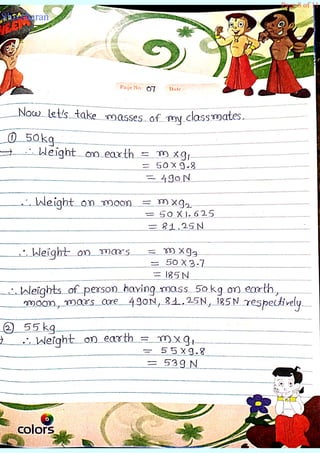 Page No. 07 Date
Now let's take masses of my classmates.
① 50kg
→ ∴ Weight on earth = m × g₁
= 50 × 9.8
= 490N
∴ Weight on moon = m × g₂
= 50 × 1.625
= 81.25N
∴ Weight on mars = m × g₃
= 50 × 3.7
= 185N
∴ Weights of person having mass 50kg on earth,
moon, mars are 490N, 81.25N, 185N respectively.
② 55kg
→ ∴ Weight on earth = m × g₁
= 55 × 9.8
= 539 N
colors